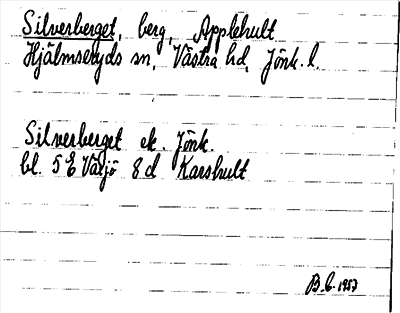 Silverberget, berg, Applehult
Hjälmseryds sn, Västra hd, Jönk. l.
Silverberget ek. Jönk.
bl. 5 E Växjö 8 d Karshult
B.C. 1953